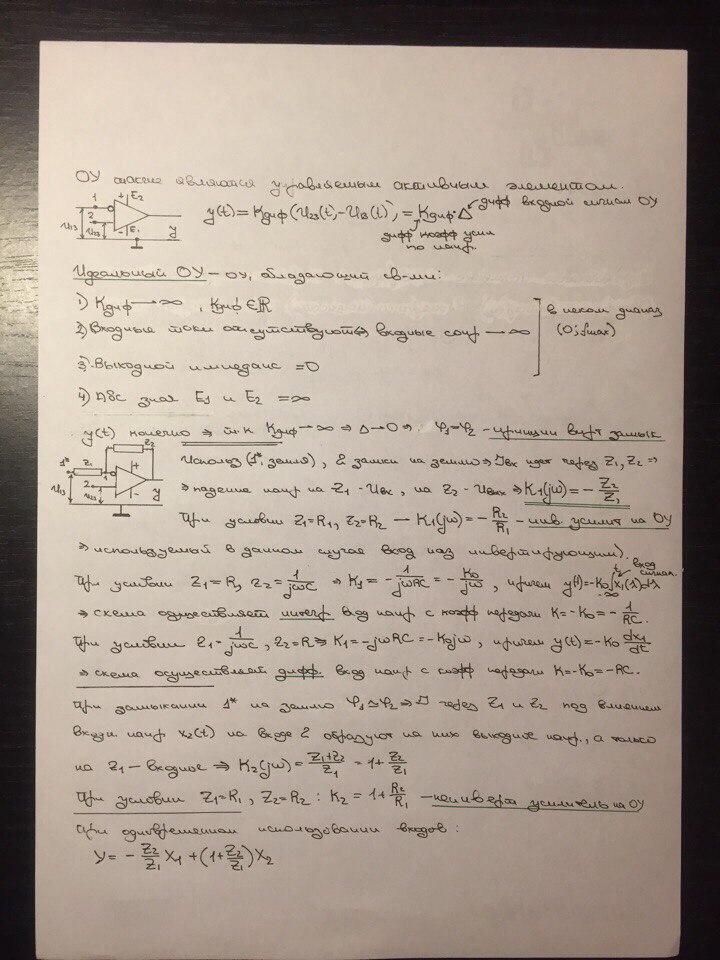 ОУ также является управляемым активным элементом.
1 + E2
2 U13 U23 - E1 y
y(t) = Kдиф(U23(t) - U13(t)) = Kдиф·Δ дифф входной сигнал ОУ
дифф коэфф усил
по напр.
Идеальный ОУ – ОУ, обладающий св-ми:
1) Kдиф → ∞ , Kдиф ∈ ℝ
2) Входные токи отсутствуют ⇔ входные сопр → ∞
3) Выходной импеданс = 0
4) Абс знач E1 и E2 = ∞
в неком диапаз
(0; fmax)
y(t) конечно ⇒ т.к Kдиф → ∞ ⇒ Δ → 0 ⇒ φ1 = φ2 - принцип вирт замык
1* Z1 Z2 1 2 + - U13 U23 y
Использ (1*, земля), 2 замкн на землю ⇒ Iвх идет через Z1, Z2 ⇒
⇒ падение напр на Z1 - Uвх, на Z2 - Uвых ⇒ K1(jω) = - Z2/Z1
При условии Z1=R1, Z2=R2 — K1(jω) = - R2/R1 - инв. усилит на ОУ
⇒ используемый в данном случае вход наз инвертирующим).
При условии Z1=R, Z2=1/jωC ⇒ K1 = - 1/jωRC = - K0/jω, причем y(t) = -K0∫x1(λ)dλ t -∞ вход сигнал.
⇒ схема осуществляет интегр вход напр с коэфф передачи K=-K0=-1/RC.
При условии Z1=1/jωC, Z2=R ⇒ K1=-jωRC=-K0jω, причем y(t)=-K0 dx1/dt
⇒ схема осуществляет дифф. вход напр с коэфф передачи K=-K0=-RC.
При замыкании 1* на землю φ1≃φ2 ⇒ I через Z1 и Z2 под влиянием
входн напр x2(t) на входе 2 образуют на них выходное напр., а только
на Z1 – входное ⇒ K2(jω) = Z1+Z2/Z1 = 1 + Z2/Z1
При условии Z1=R1, Z2=R2 : K2 = 1 + R2/R1 - неинверт усилитель на ОУ
При одновременном использовании входов:
Y = - Z2/Z1 X1 + (1+Z2/Z1)X2